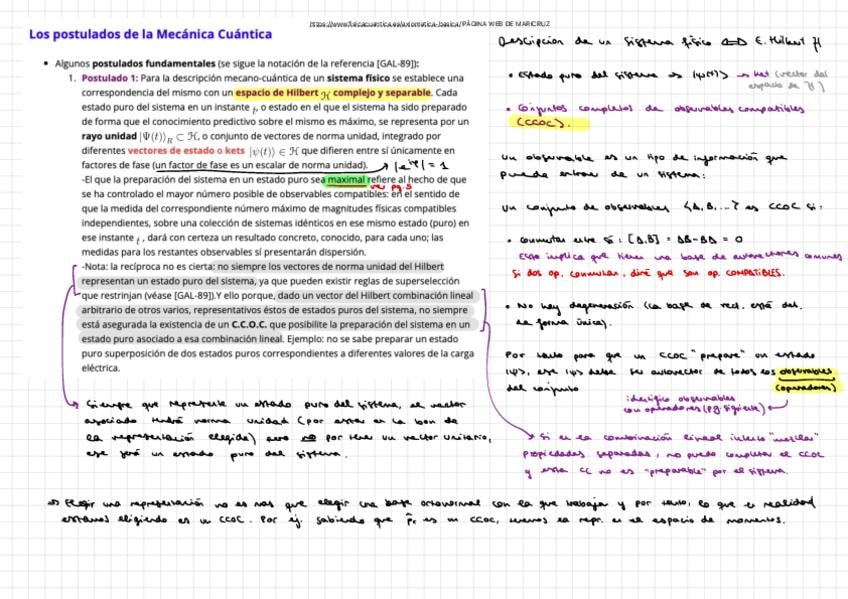 https://www.fisicacuantica.es/axiomatica-basica/ PÁGINA WEB DE MARICRUZ
Los postulados de la Mecánica Cuántica
• Algunos postulados fundamentales (se sigue la notación de la referencia [GAL-89]):
1. Postulado 1: Para la descripción mecano-cuántica de un sistema físico se establece una
correspondencia del mismo con un espacio de Hilbert ℋ complejo y separable. Cada
estado puro del sistema en un instante t, o estado en el que el sistema ha sido preparado
de forma que el conocimiento predictivo sobre el mismo es máximo, se representa por un
rayo unidad |Ψ(t)⟩_R ⊂ ℋ, o conjunto de vectores de norma unidad, integrado por
diferentes vectores de estado o kets |ψ(t)⟩ ∈ ℋ que difieren entre sí únicamente en
factores de fase (un factor de fase es un escalar de norma unidad). → |e^iφ| = 1
-El que la preparación del sistema en un estado puro sea maximal refiere al hecho de que
ver pg. 5
se ha controlado el mayor número posible de observables compatibles: en el sentido de
que la medida del correspondiente número máximo de magnitudes físicas compatibles
independientes, sobre una colección de sistemas idénticos en ese mismo estado (puro) en
ese instante t, dará con certeza un resultado concreto, conocido, para cada uno; las
medidas para los restantes observables sí presentarán dispersión.
-Nota: la recíproca no es cierta: no siempre los vectores de norma unidad del Hilbert
representan un estado puro del sistema, ya que pueden existir reglas de superselección
que restrinjan (véase [GAL-89]).Y ello porque, dado un vector del Hilbert combinación lineal
arbitrario de otros varios, representativos éstos de estados puros del sistema, no siempre
está asegurada la existencia de un C.C.O.C. que posibilite la preparación del sistema en un
estado puro asociado a esa combinación lineal. Ejemplo: no se sabe preparar un estado
puro superposición de dos estados puros correspondientes a diferentes valores de la carga
eléctrica.
Siempre que represente un estado puro del sistema, el vector
asociado tendrá norma unidad (por estar en la base de
la representación elegida) pero no por tener un vector unitario,
ese será un estado puro del sistema.
Descripción de un sistema físico ⟺ E. Hilbert ℋ
• Estado puro del sistema → |ψ(t)⟩ → ket (vector del
espacio de ℋ)
• Conjuntos completos de observables compatibles
(CCOC).
Un observable es un tipo de información que
puede extraer de un sistema:
Un conjunto de observables {A, B, ...} es CCOC si:
• conmutar entre sí: [A,B] = AB-BA = 0
Esto implica que tienen una base de autovectores comunes
Si dos op. conmutan, diré que son op. COMPATIBLES.
• No hay degeneración (la base de vect. está det.
de forma única).
Por tanto para que un CCOC "prepare" un estado
|ψ⟩, ese |ψ⟩ debe ser autovector de todos los observables
del conjunto (operadores)
identifico observables
con operadores (pg siguiente)
Si en la combinación lineal intento "mezclar"
propiedades separadas, no puedo completar el CCOC
y esta CL no es "preparable" por el sistema.
Elegir una representación no es más que elegir una base ortonormal con la que trabajar y por tanto, lo que en realidad
estamos eligiendo es un CCOC. Por ej. sabiendo que es un CCOC, tenemos la repr. en el espacio de momentos.